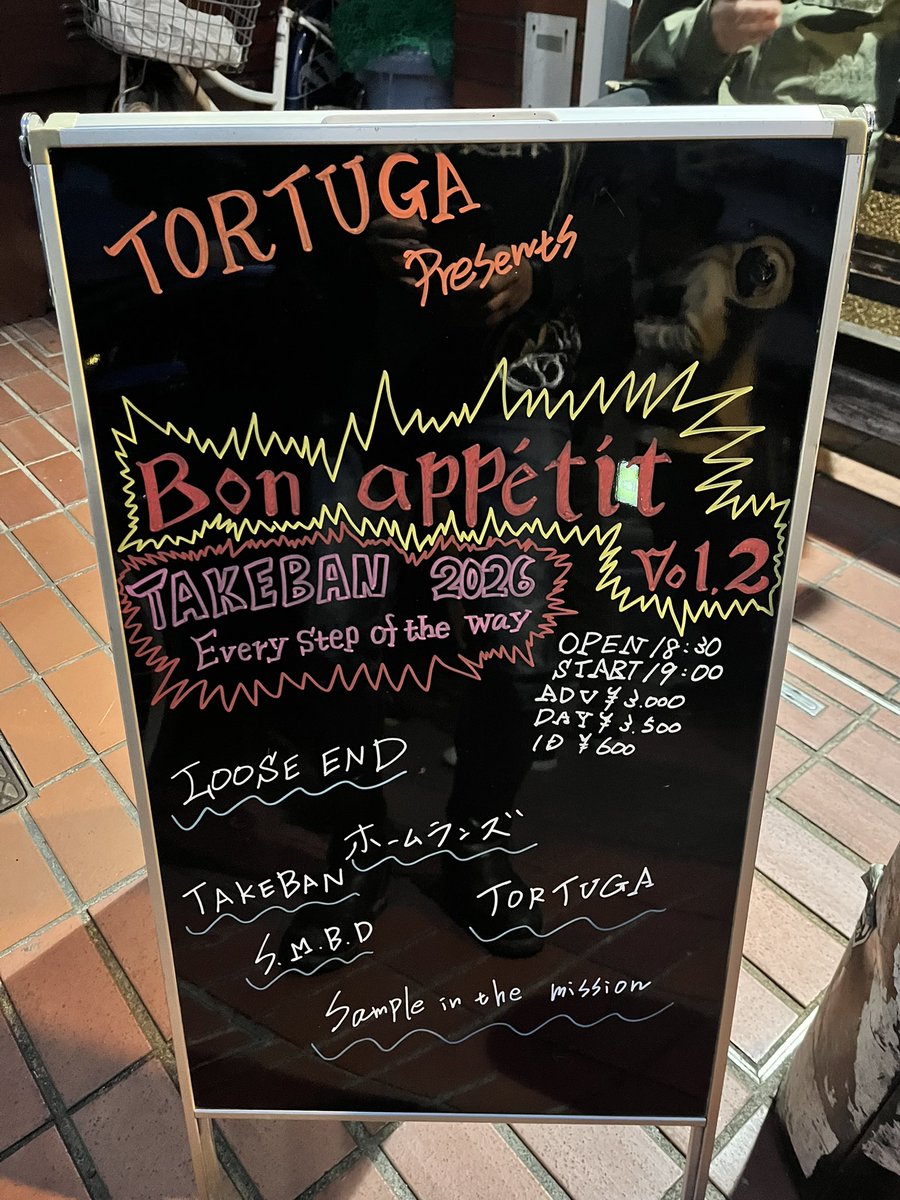 TORTUGA
Presents
Bon appétit
Vol.2
TAKEBAN 2026
Every Step of the way
OPEN/18:30
START/19:00
ADV ¥3.000
DAY ¥3.500
1D ¥600
LOOSE END
ホームランズ
TAKEBAN
TORTUGA
S.M.B.D
Sample in the mission